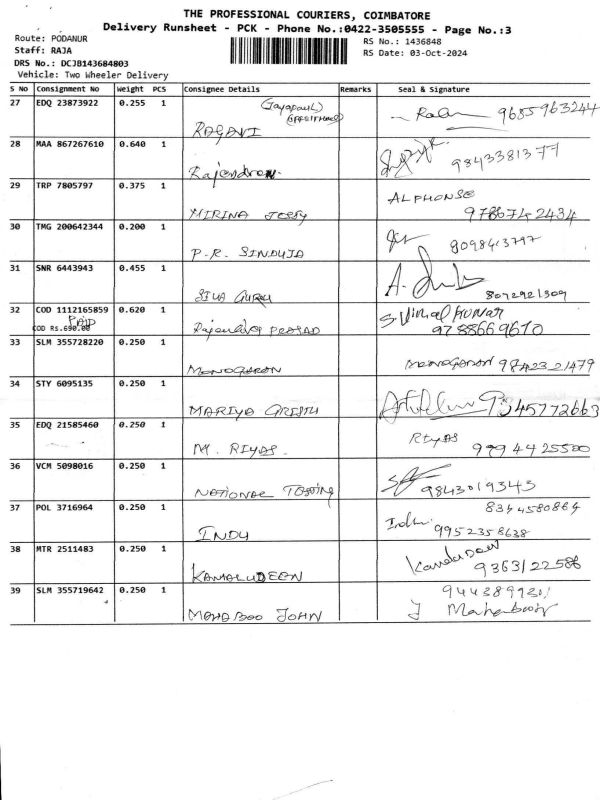 THE PROFESSIONAL COURIERS, COIMBATORE
Delivery Runsheet - PCK - Phone No.:0422-3505555 - Page No.:3
Route: PODANUR
RS No.: 1436848
Staff: RAJA
RS Date: 03-Oct-2024
DRS No.: DCJB143684803
Vehicle: Two Wheeler Delivery
S No Consignment No Weight PCS Consignee Details Remarks Seal & Signature
27 EDQ 23873922 0.255 1 (Jayapaul)
RAGAVI 9685963244
28 MAA 867267610 0.640 1
Rajendran. 9843381377
29 TRP 7805797 0.375 1 ALPHONSE
MIRINA JESSY 978674 2434
30 TMG 200642344 0.200 1
P.R. SINDUJA 8098413797
31 SNR 6443943 0.455 1
SIVA GURU 8072921309
32 COD 1112165859 0.620 1 S. Vimal Kumar
PAID
COD Rs.690.00 PRASAD 9788669610
33 SLM 355728220 0.250 1
MANOGARAN MANOGARAN 9842321479
34 STY 6095135 0.250 1
MARIYA 9345772663
35 EDQ 21585460 0.250 1 RIYAS
M. RIYAS. 9994425500
36 VCM 5098016 0.250 1
NATIONAL 9843019343
37 POL 3716964 0.250 1 8344580864
INDU Indhu. 9952358638
38 MTR 2511483 0.250 1
KAMALUDEEN 9363122586
39 SLM 355719642 0.250 1 9443899301
JOHN J Mahaboob